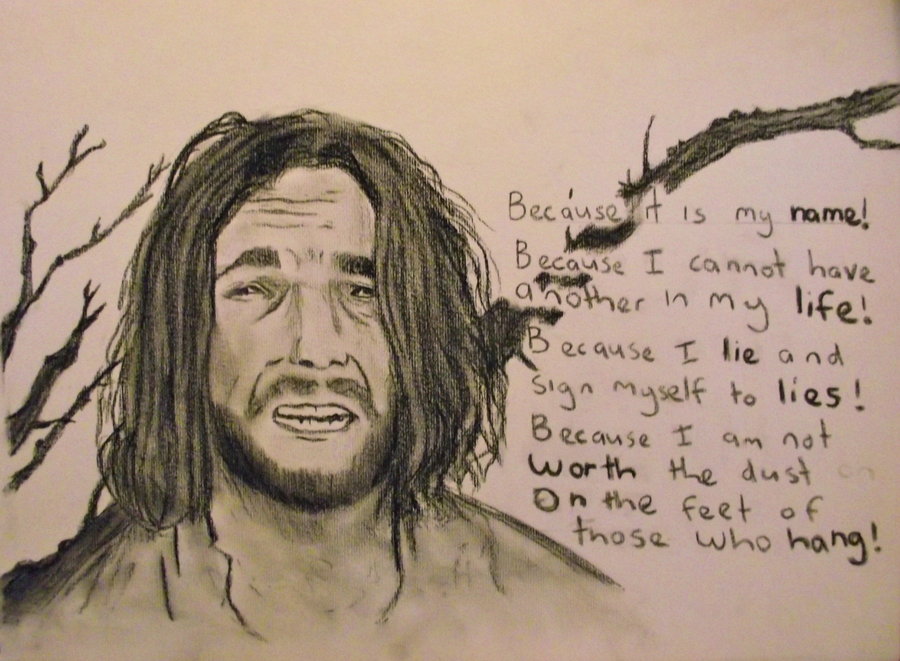 Because it is my name!
Because I cannot have
another in my life!
Because I lie and
sign myself to lies!
Because I am not
worth the dust
On the feet of
those who hang!